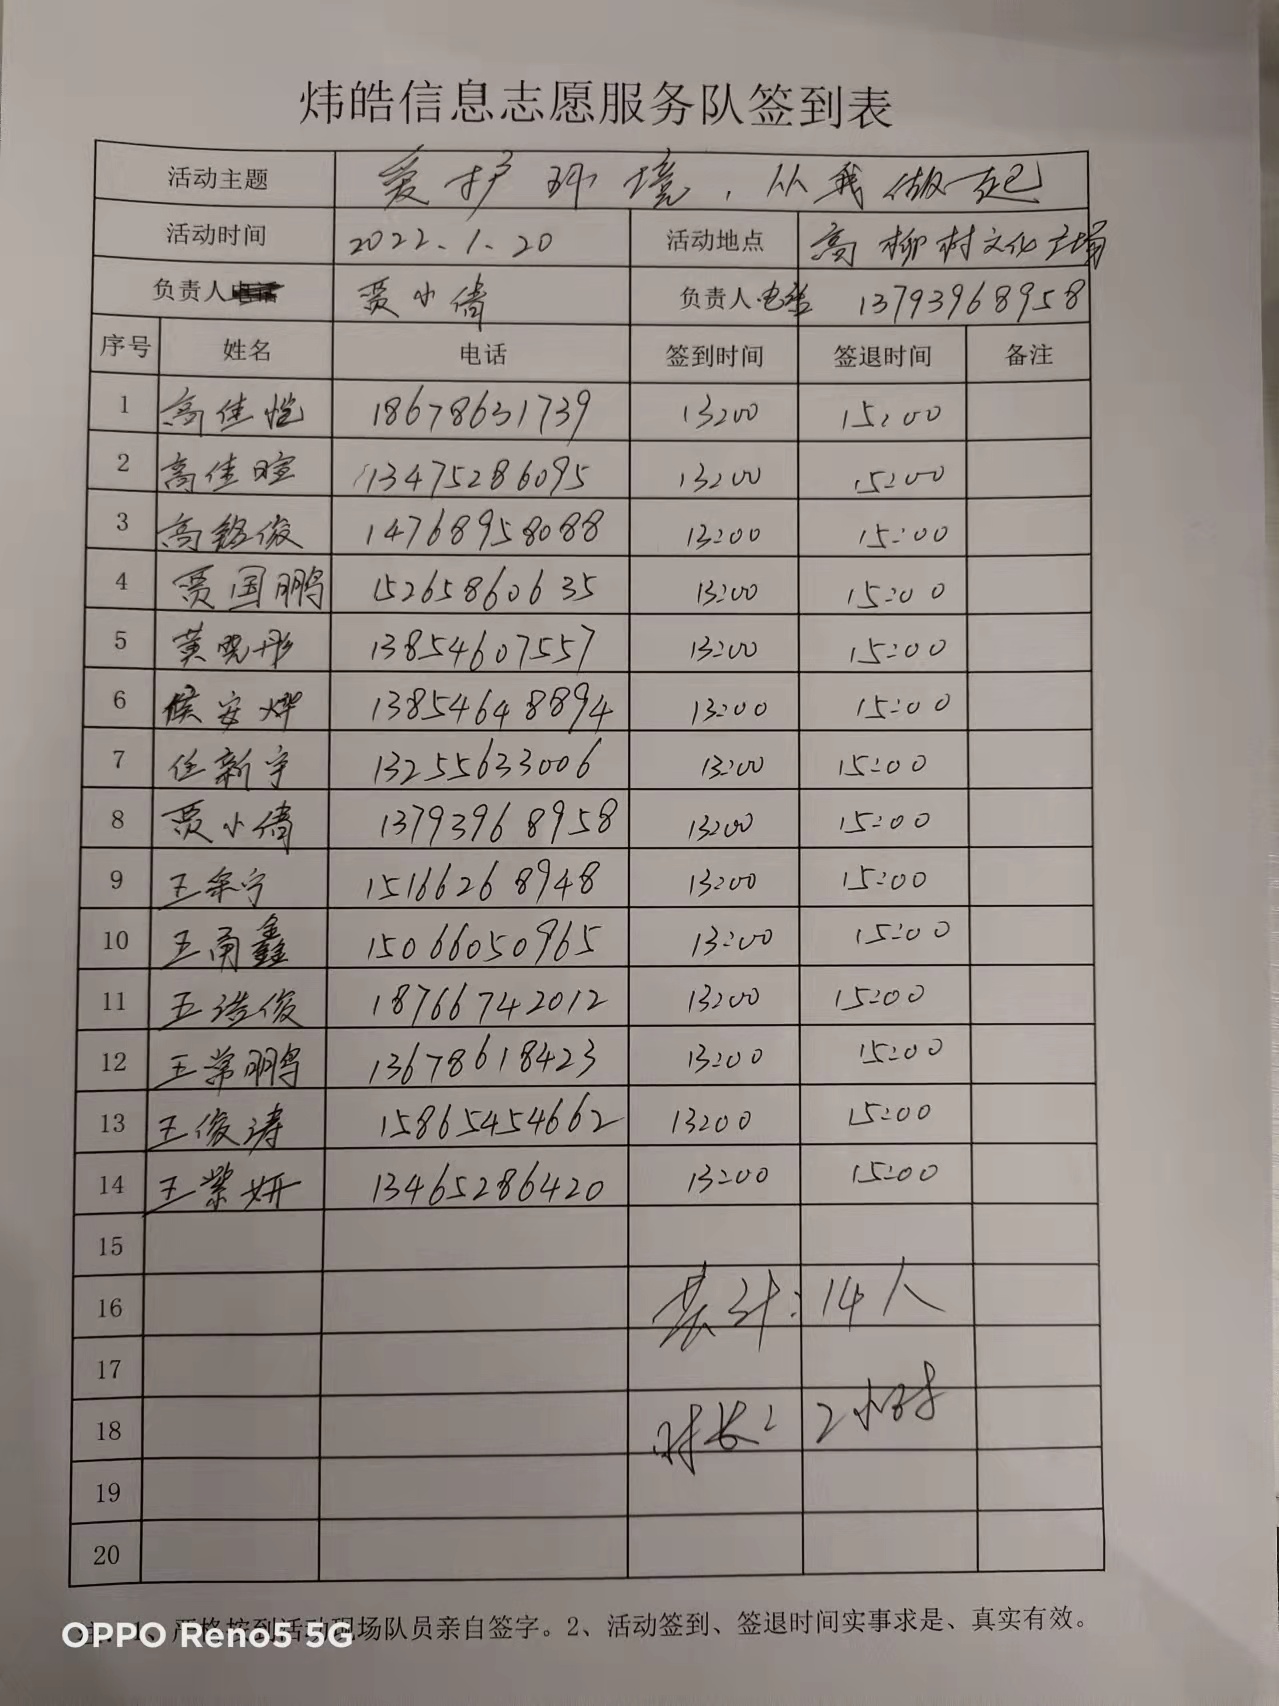 炜皓信息志愿服务队签到表
活动主题 爱护环境，从我做起
活动时间 2022.1.20 活动地点 高柳村文化广场
负责人 贾小倩 负责人电话 13793968958
序号 姓名 电话 签到时间 签退时间 备注
1 高佳恺 18678631739 13:00 15:00
2 高佳暄 13475286095 13:00 15:00
3 高铭俊 14768958088 13:00 15:00
4 贾国鹏 15265860635 13:00 15:00
5 黄晓彤 13854607557 13:00 15:00
6 侯安烨 13854648894 13:00 15:00
7 任新宇 13255633006 13:00 15:00
8 贾小倩 13793968958 13:00 15:00
9 王宗宁 15166268948 13:00 15:00
10 王甬鑫 15066050965 13:00 15:00
11 王浩俊 18766742012 13:00 15:00
12 王常鹏 13678618423 13:00 15:00
13 王俊涛 15865454662 13:00 15:00
14 王紫妍 13465286420 13:00 15:00
15
16 共计：14人
17
18 时长：2小时
19
20
1、严格按到活动现场队员亲自签字。2、活动签到、签退时间实事求是、真实有效。
OPPO Reno5 5G